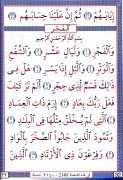 إِيَابَهُمْ ثُمَّ إِنَّ عَلَيْنَا حِسَابَهُمْ
الفجر
بِسْمِ اللَّهِ الرَّحْمَٰنِ الرَّحِيمِ
وَالْفَجْرِ وَلَيَالٍ عَشْرٍ وَالشَّفْعِ
وَالْوَتْرِ وَاللَّيْلِ إِذَا يَسْرِ هَلْ فِي
ذَٰلِكَ قَسَمٌ لِذِي حِجْرٍ أَلَمْ تَرَ كَيْفَ
فَعَلَ رَبُّكَ بِعَادٍ إِرَمَ ذَاتِ الْعِمَادِ
الَّتِي لَمْ يُخْلَقْ مِثْلُهَا فِي الْبِلَادِ
وَثَمُودَ الَّذِينَ جَابُوا الصَّخْرَ بِالْوَادِ
وَفِرْعَوْنَ ذِي الْأَوْتَادِ الَّذِينَ